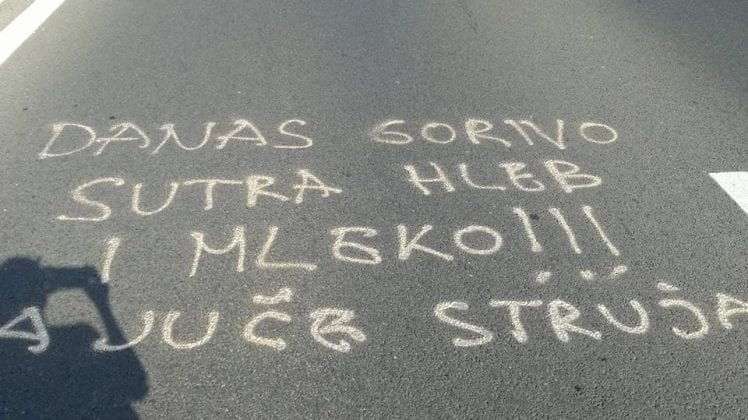 DANAS GORIVO
SUTRA HLEB
I MLEKO!!!
A JUČE STRUJA